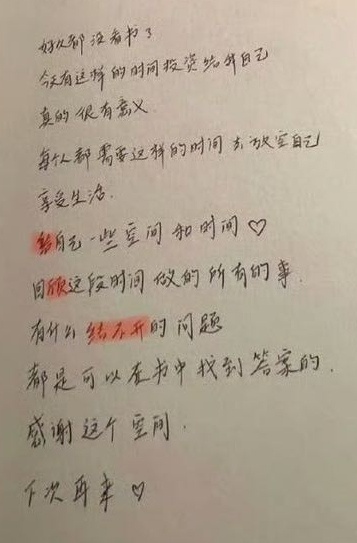 好久都没看书了
今天有这样的时间投资给我自己
真的很有意义.
每个人都需要这样的时间去放空自己
享受生活.
给自己一些空间和时间♡
回顾这段时间做的所有的事.
有什么结不开的问题
都是可以在书中找到答案的.
感谢这个空间.
下次再来♡